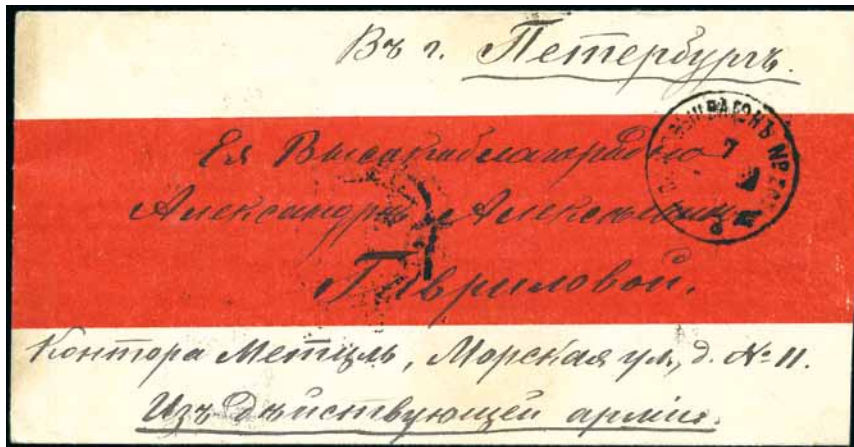 Въ г. Петербургъ.
Ея Высокоблагородiю
Александрѣ Алексѣевнѣ
Гавриловой.
Контора Метцль, Морская ул., д. № 11.
Изъ Дѣйствующей армiи.
ВАГОНЪ №
7